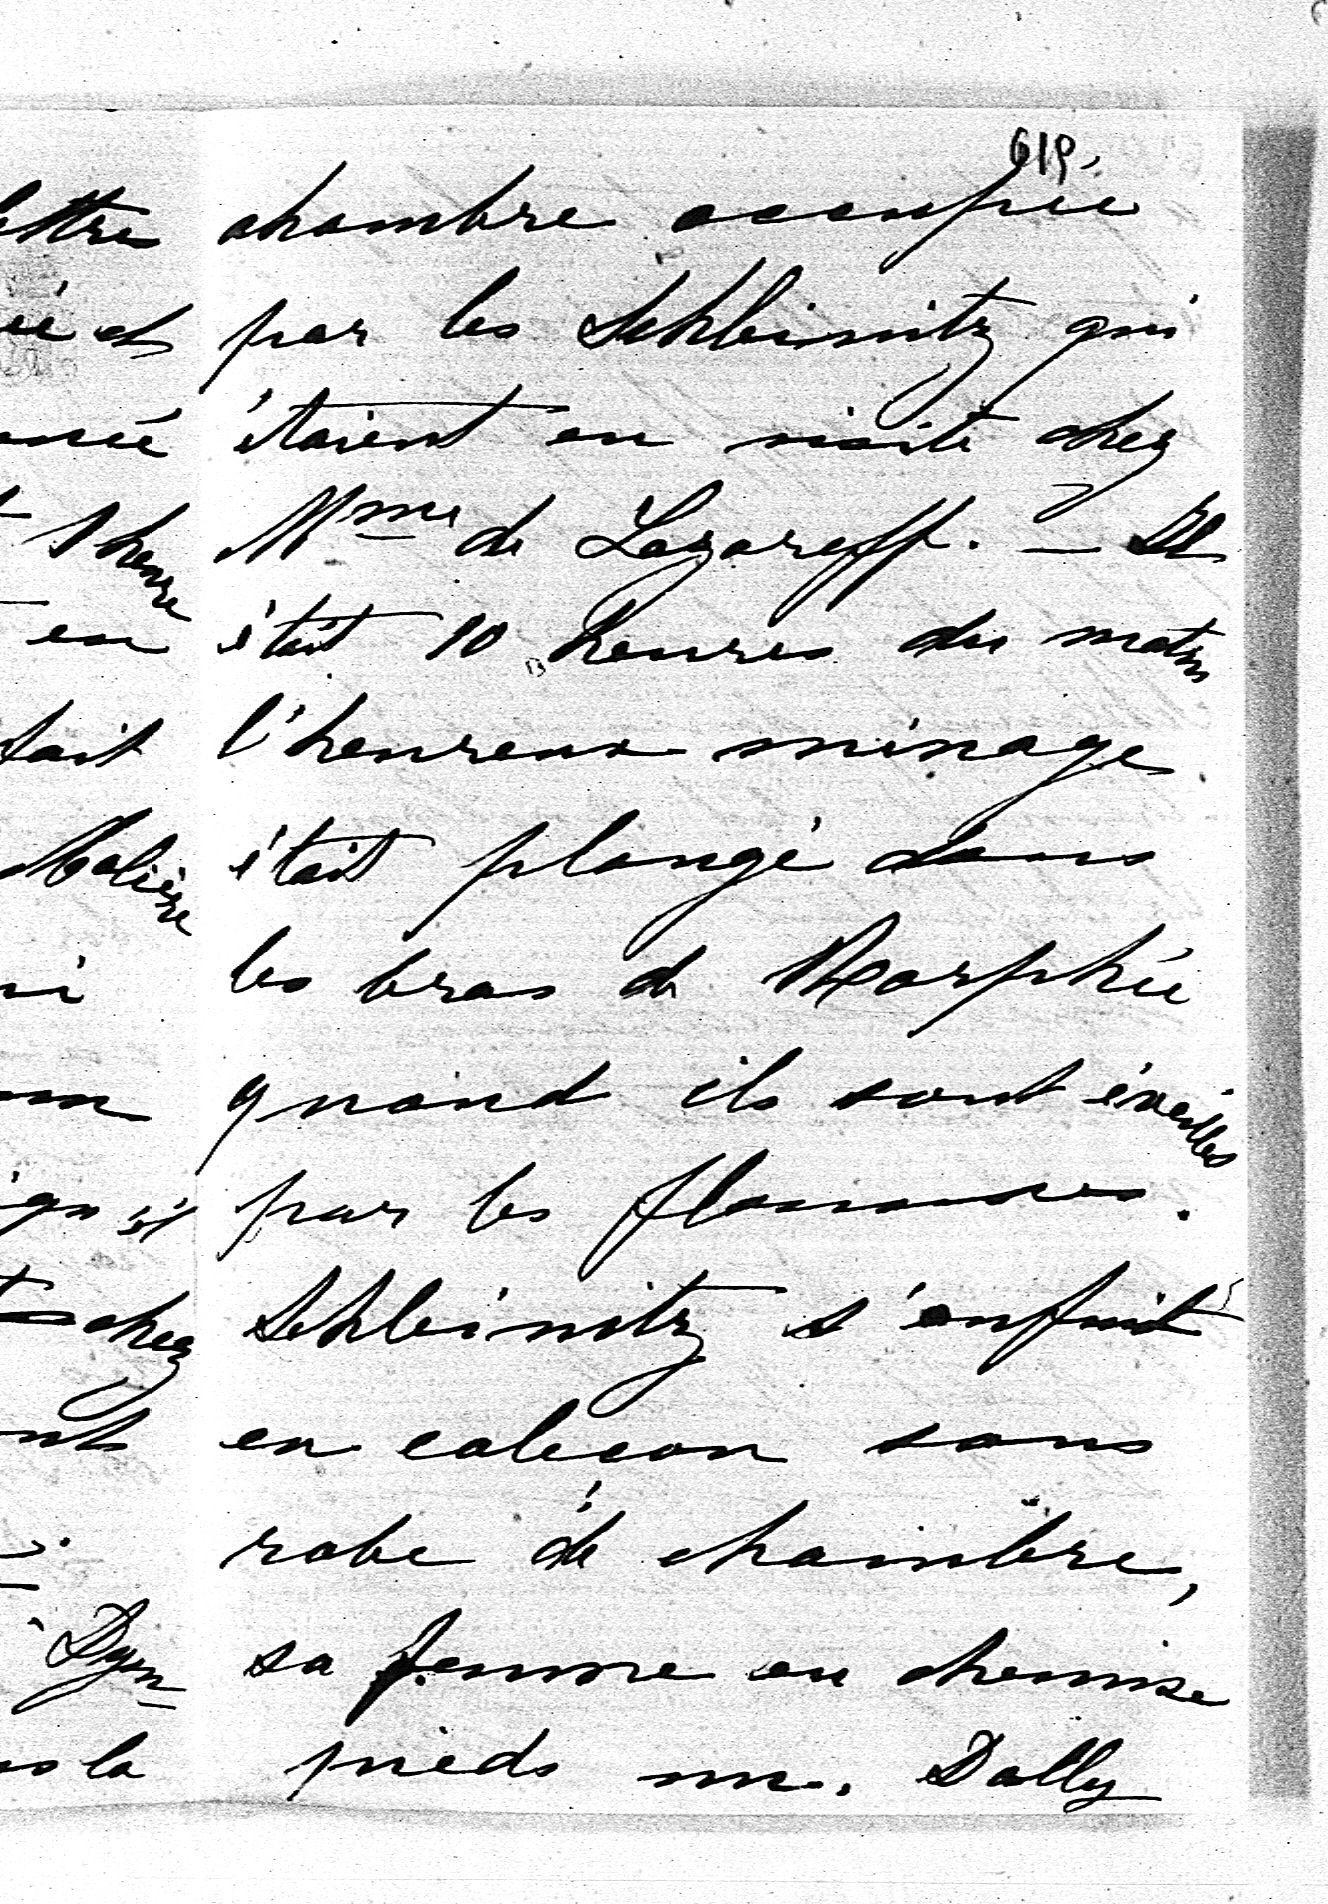 619.
chambre occupée
par les Schleinitz qui
étaient en visite chez
Mme de Lazareff. — Il
était 10 heures du matin
l'heureux ménage
était plongé dans
les bras de Morphée
quand ils sont éveillés
par les flammes.
Schleinitz s'enfuit
en caleçon sans
robe de chambre,
sa femme en chemise
pieds nus. Dolly